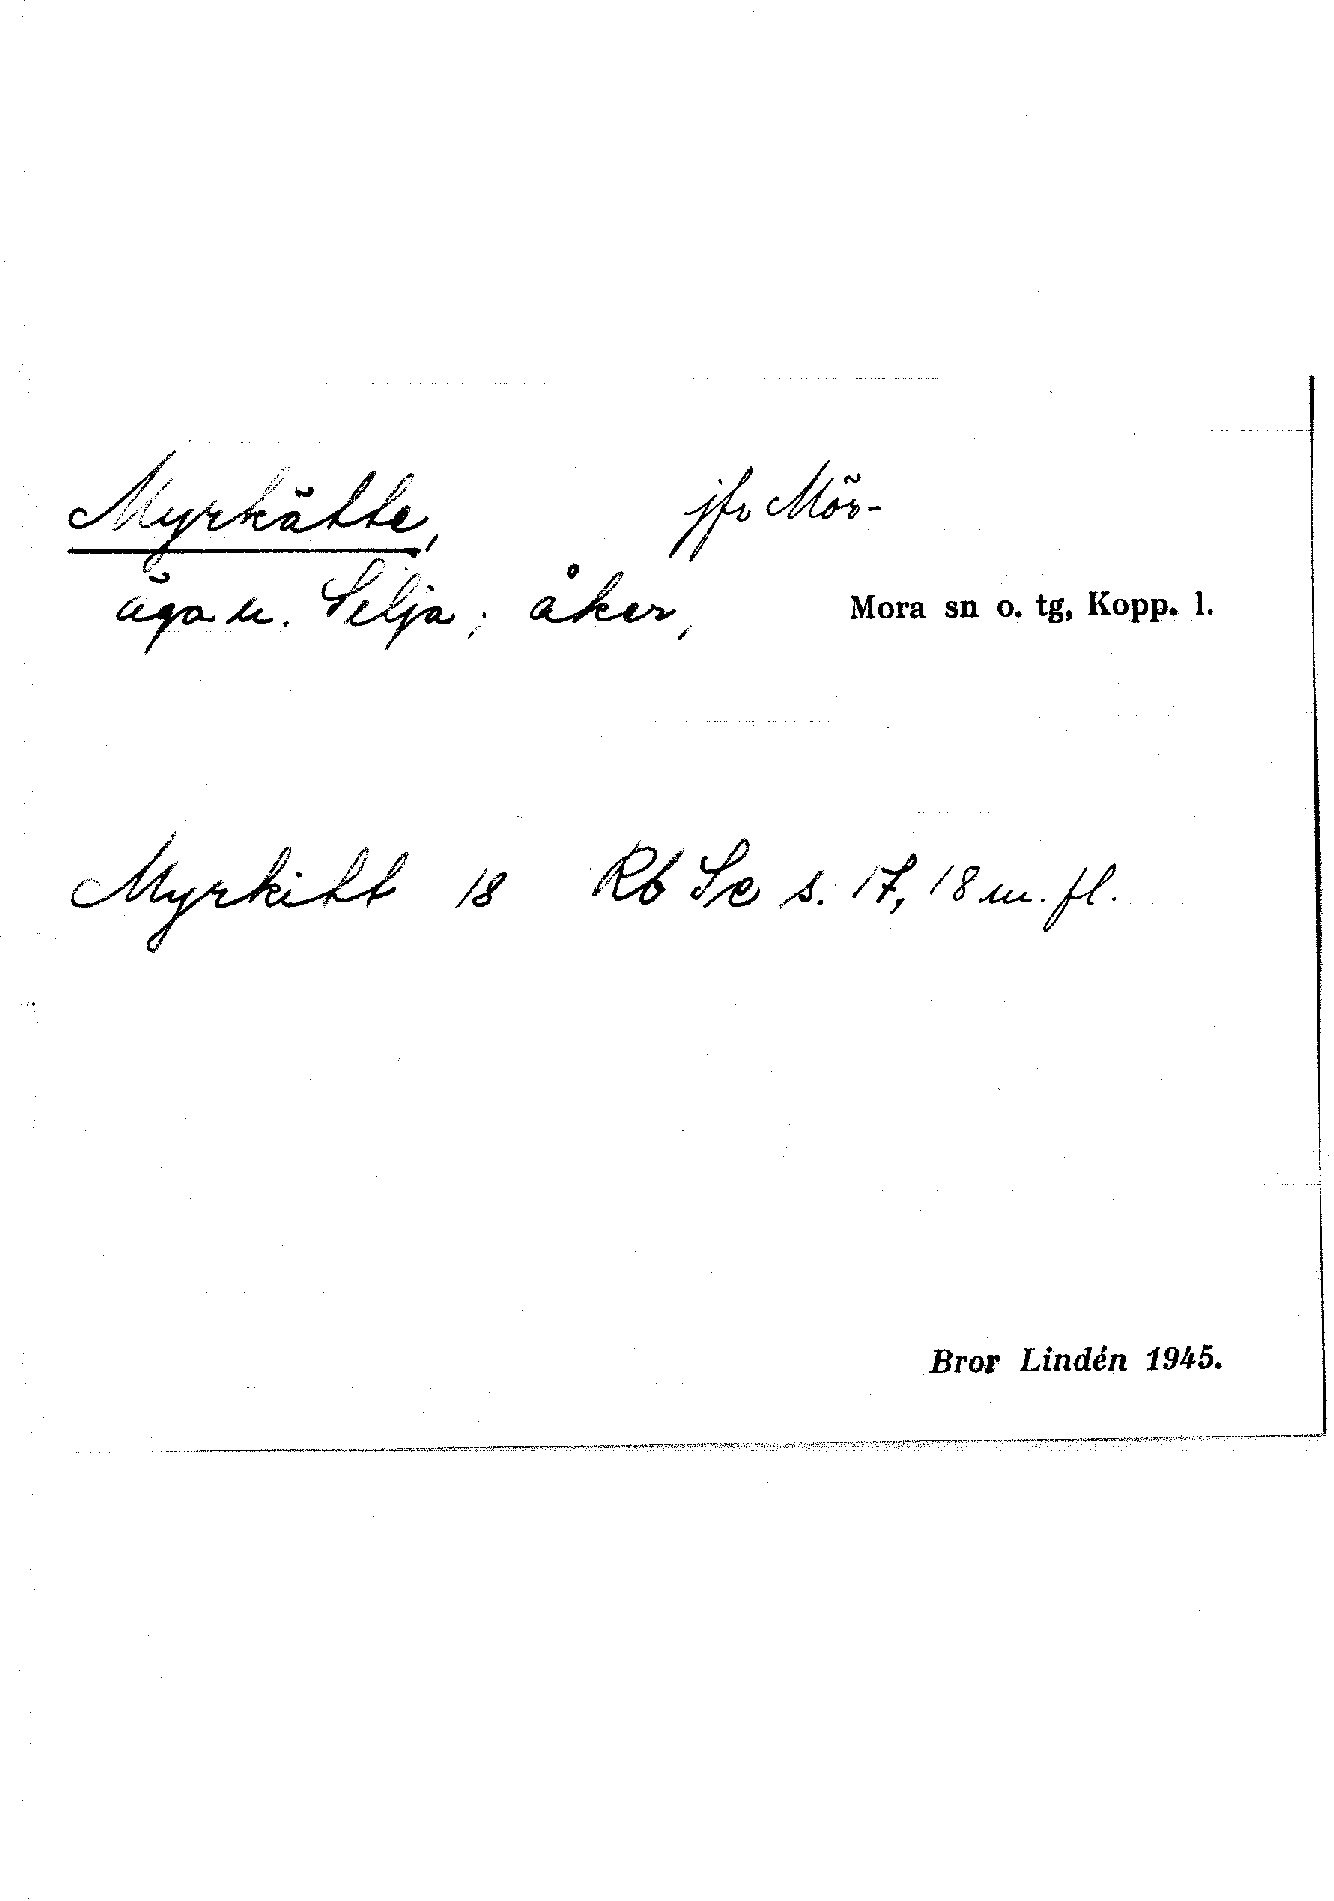 Myrkätte, jfr Mör-
äga u. Selja; åker, Mora sn o. tg, Kopp. l.
Myrkitt 18 Rb Se s. 17, 18 m. fl.
Bror Lindén 1945.